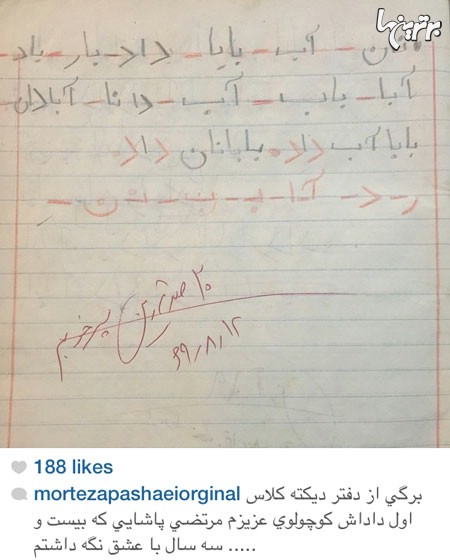 برترینها
نان - آب - بابا - داد - بار - باد -
آبا - باب - آب - دانا - آبادان
بابا آب داد. بابا نان داد
ر - د - آ ا - ب - ن -
۲۰ صد آفرین پسر خوبم
۶۹٫۸٫۱۲
188 likes
mortezapashaeiorginal برگي از دفتر ديكته كلاس
اول داداش كوچولوي عزيزم مرتضي پاشايي كه بيست و
سه سال با عشق نگه داشتم .....